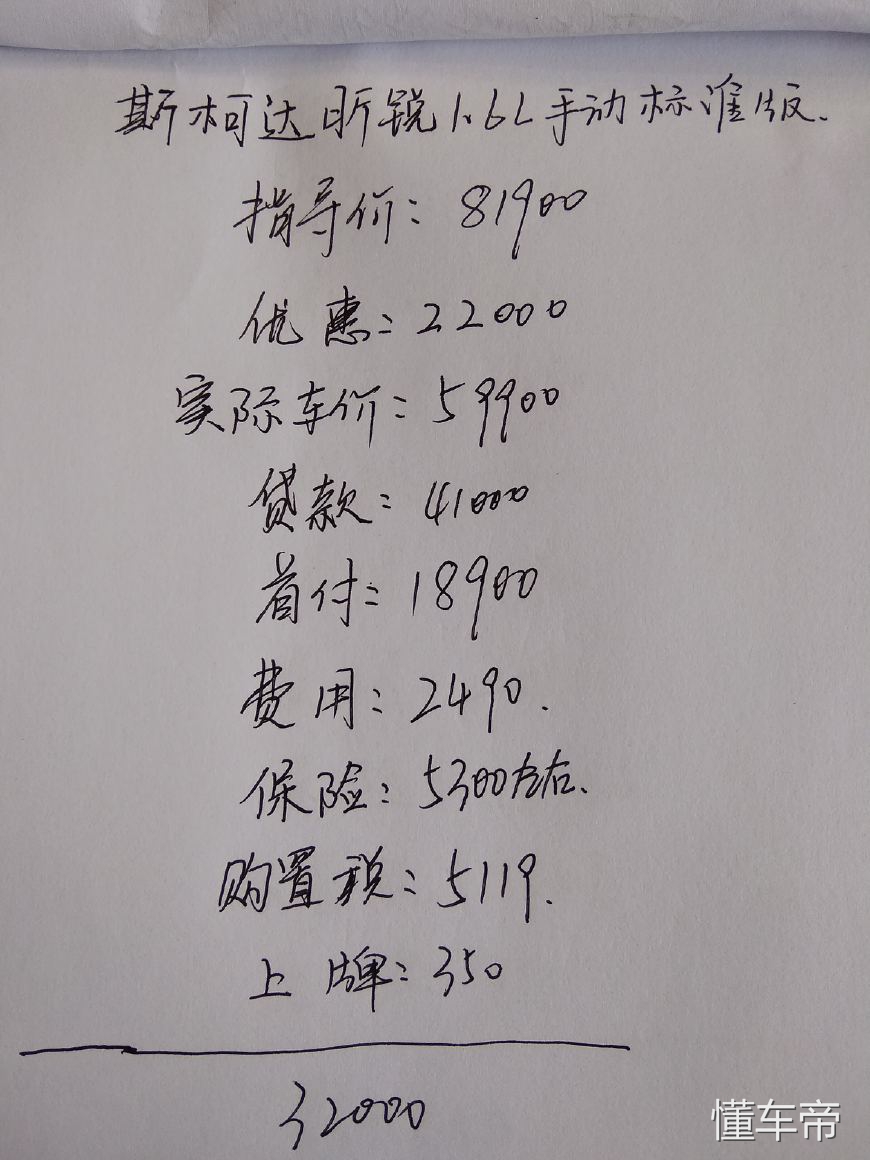 斯柯达昕锐1.6L手动标准版.
指导价：81900
优惠：22000
实际车价：59900
贷款：41000
首付：18900
费用：2490.
保险：5300左右.
购置税：5119.
上牌：350
32000
懂车帝